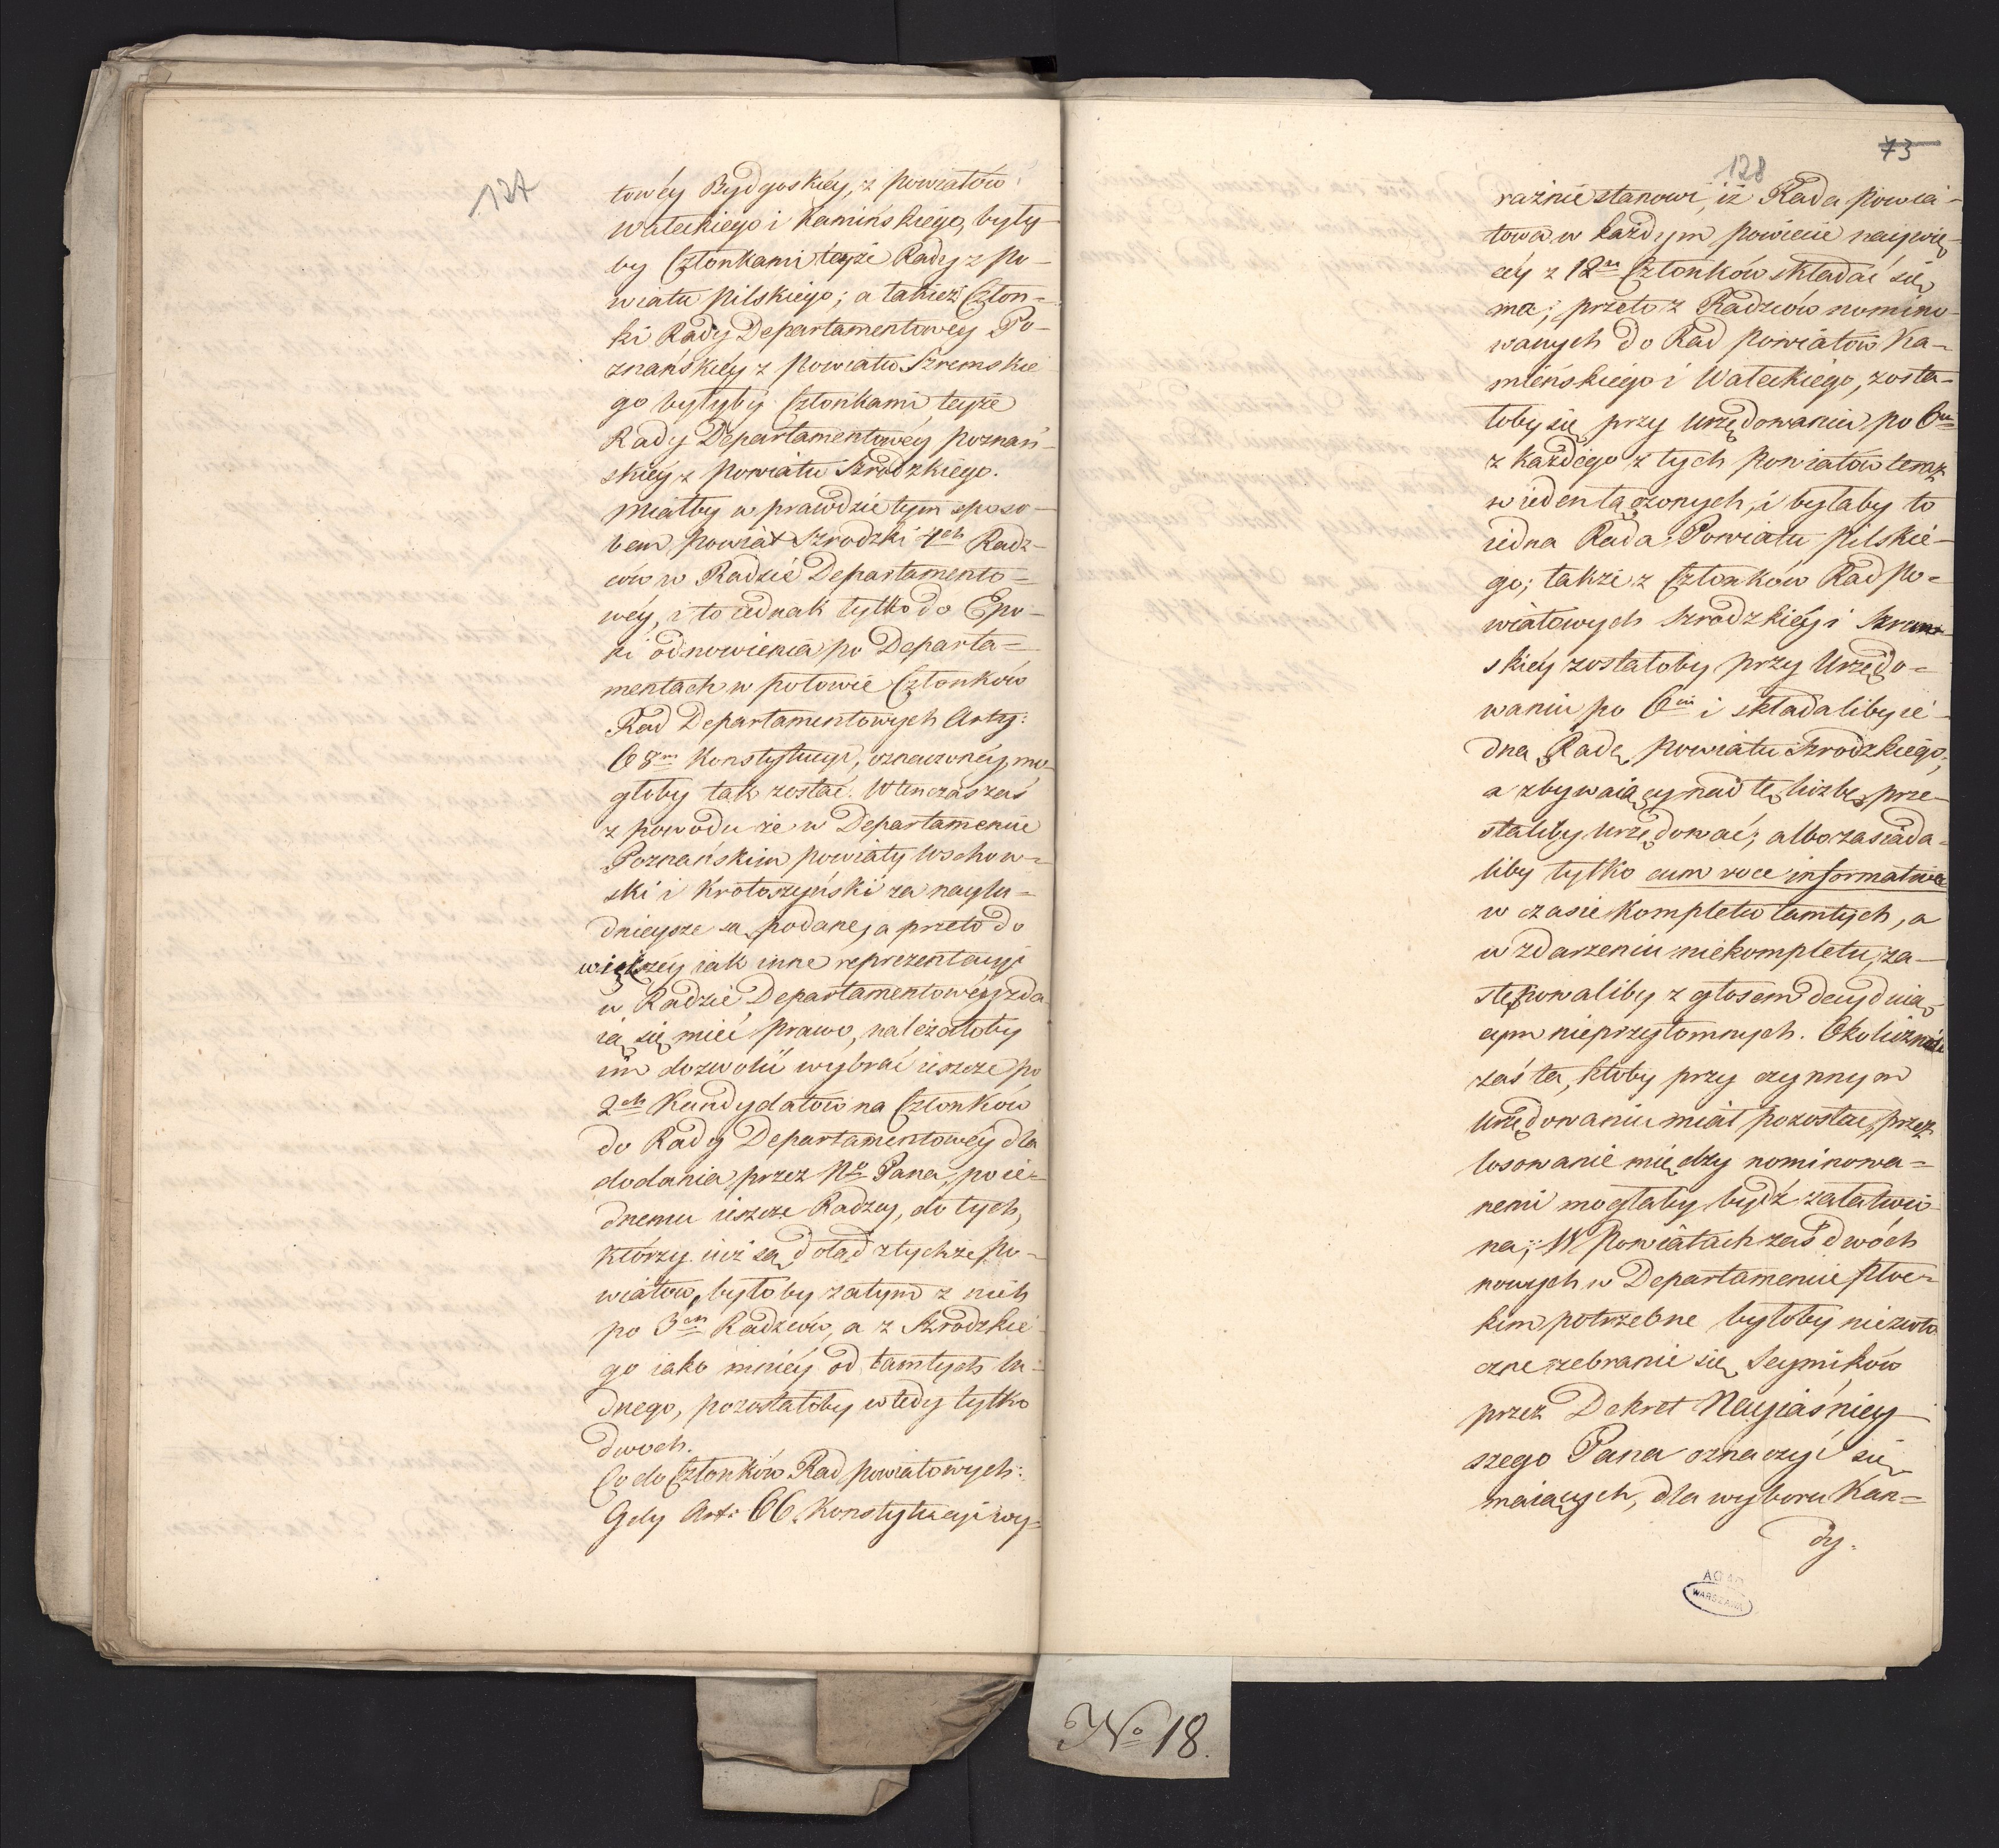 127
towéy Bydgoskiéy, z powiatów
Wałeckiego i Kamińskiego, były-
by Członkami teyże Rady z Po-
wiatu Pilskiego; a takież Człon-
ki Rady Departamentowey Po-
znańskiéy z Powiatu Szremskie
go byłyby Członkami teyże
Rady Departamentowéy poznań-
skiéy z powiatu Szrodzkiego.
Miałby w prawdzie tym sposo-
bem powiat Szrodzki 4ch Radz-
ców w Radzie Departamento-
wéy, i to iednak tylko do Epo-
ki odnowienia po Departa-
mentach w połowie Członków
Rad Departamentowych Arty:
68m Konstytucyi, oznaczonéy, mo-
głoby tak zostać. Wtenczas zaś
z powodu że w Departamencie
Poznańskim powiaty Wschow-
ski i Krotoszyński za naylu-
dnieysze są podane, a przeto do
większéy iak inne reprezentacyi
w Radzie Departamentowéy zda
ią się mieć prawo, należałoby
im dozwolić wybrać ieszcze po
2ch Kandydatów na Członków
do Rady Departamentowéy dla
dodania przez No Pana, po ie-
dnemu ieszcze Radzcy, do tych,
którzy iuż są dotąd z tychże Po-
wiatów, byłoby zatym z nich
po 3ch Radzców, a z Szrodzkie
go iako mniéy od tamtych lu-
dnego, pozostałoby wtedy tylko
dwoch.
Co do Członków Rad powiatowych:
Gdy Art: 66. Konstytucyi wy-
73
128
raźnie stanowi, iż Rada powia-
towa w każdym powiecie naywię-
céy z 12u Członków składać się
ma; przeto z Radzców nomino-
wanych do Rad powiatów Ka-
mieńskiego i Wałeckiego, zosta-
łoby się przy urzędowaniu po 6u
z każdego z tych Powiatów teraz
w ieden łączonych, i byłaby to
iedna Rada Powiatu Pilskie-
go; także z Członków Rad Po-
wiatowych Szrodzkiéy i Szrem-
skiéy zostałoby przy Urzędo-
waniu po 6iu i składaliby ie-
dną Radę powiatu Szrodzkiego;
a zbywaiący nad tę liczbę, prze-
staliby urzędować; albo zasiada-
liby tylko cum voce informativa
w czasie kompletu tamtych, a
w zdarzeniu niekompletu, za-
stępowaliby z głosem decyduią-
cym nieprzytomnych. Okoliczność
zaś ta, ktoby przy czynnym
urzędowaniu miał pozostać, przez
losowanie między nominowa-
nemi mogłaby bydź załatwio
na; W Powiatach zaś dwóch
nowych w Departamencie Płoc-
kim potrzebne byłoby niezwło
czne zebranie się Seymików
przez Dekret Nayiaśniey
szego Pana oznaczyć się
maiących, dla wyboru Kan-
dy-
WARSZAWA
No 18.